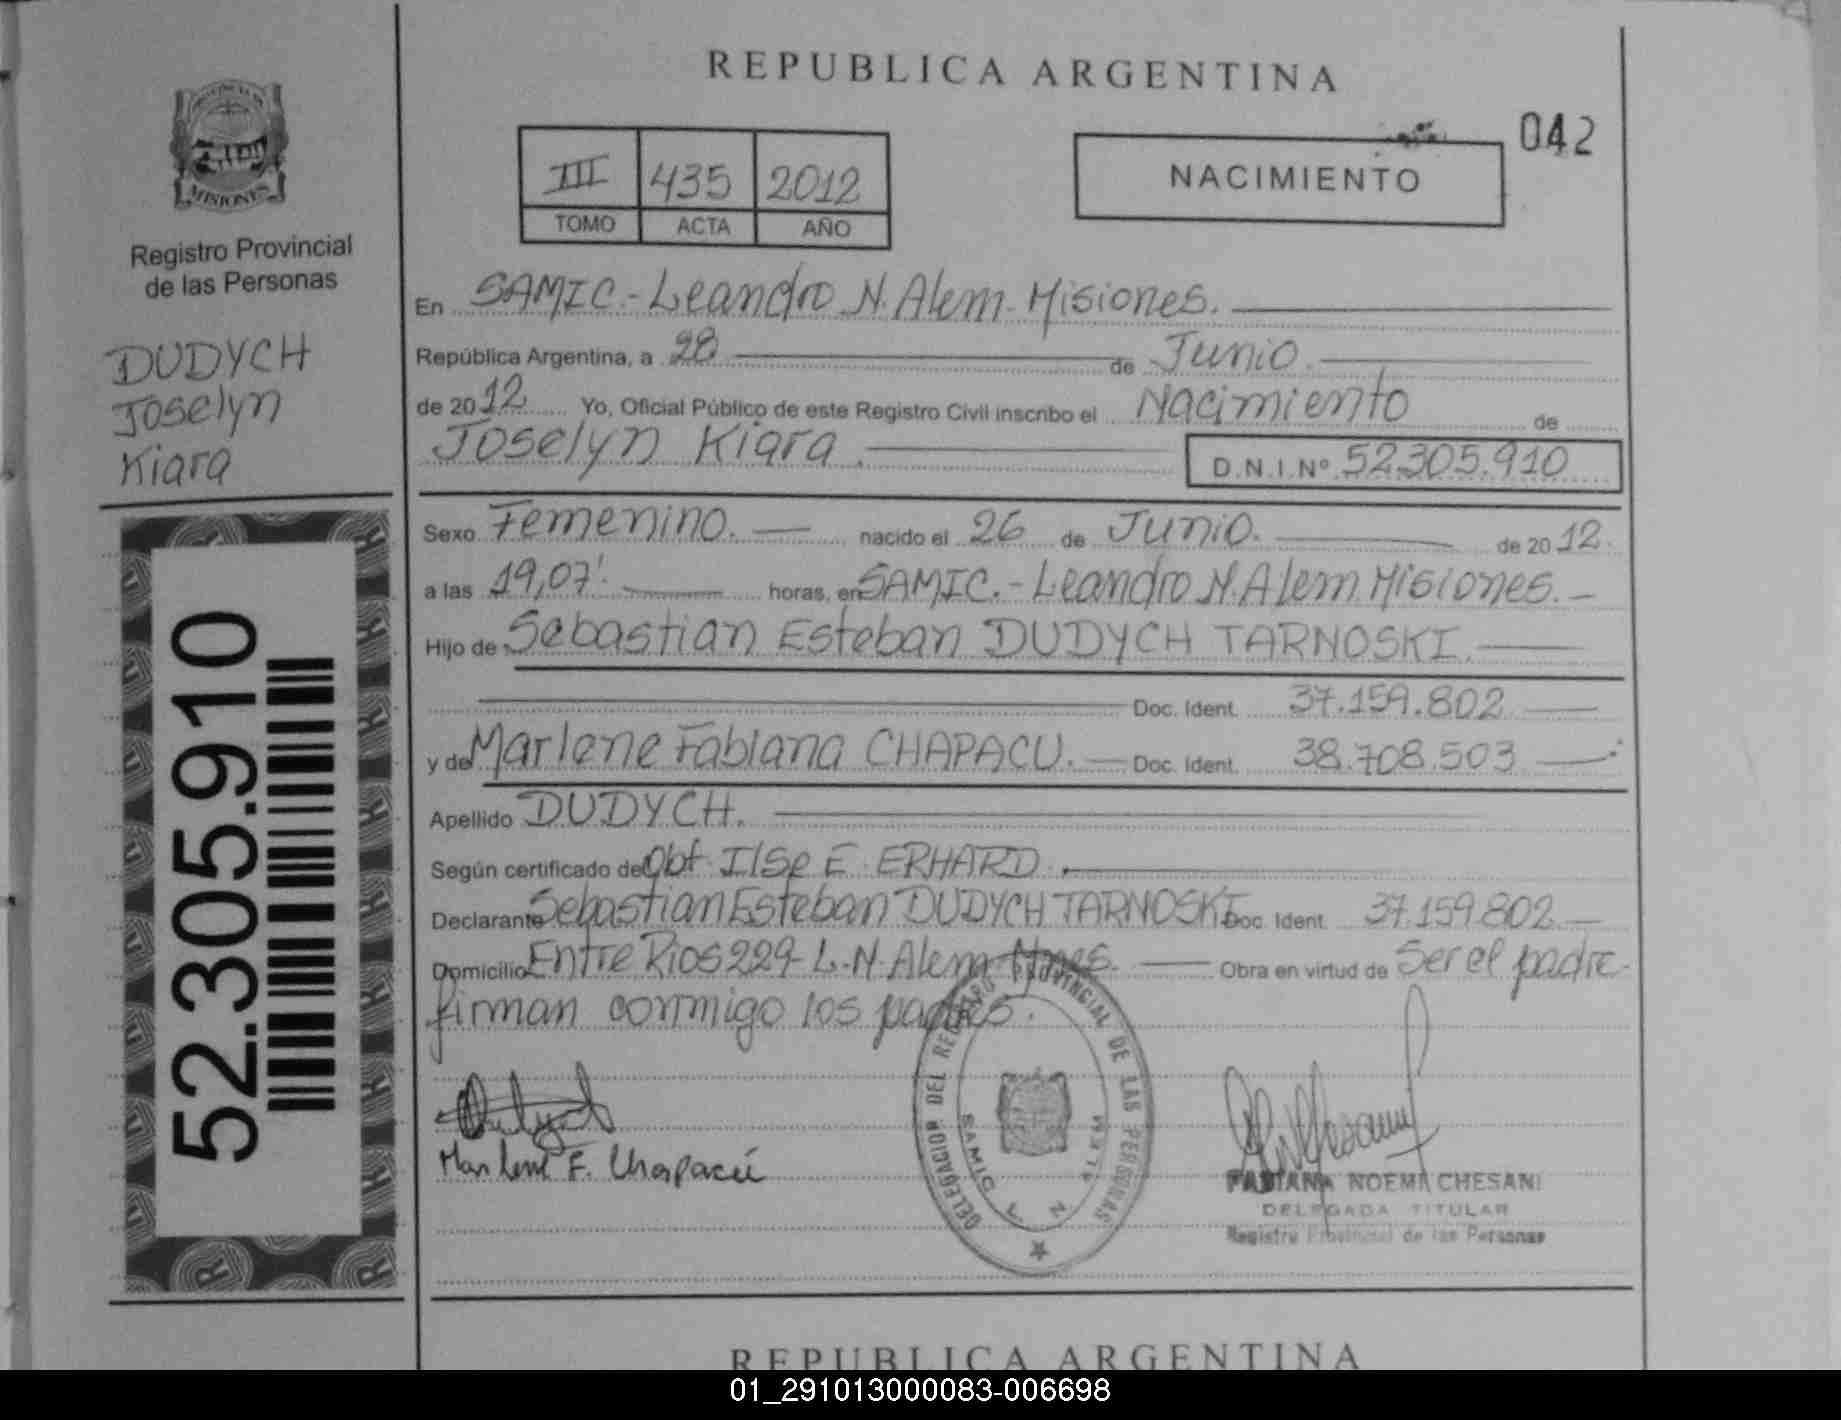 REPUBLICA ARGENTINA
042
PROVINCIA DE
MISIONES
III 435 2012
TOMO ACTA AÑO
NACIMIENTO
Registro Provincial
de las Personas
DUDYCH
Joselyn
Kiara
52.305.910
En SAMIC.- Leandro N. Alem- Misiones.
República Argentina, a 28 de Junio.
de 2012 Yo, Oficial Público de este Registro Civil inscribo el Nacimiento de
Joselyn Kiara. D.N.I.Nº 52.305.910
Sexo Femenino. nacido el 26 de Junio. de 2012.
a las 19,07'. horas, en SAMIC.- Leandro N. Alem. Misiones.-
Hijo de Sebastian Esteban DUDYCH TARNOSKI.
Doc. Ident. 37.159.802
y de Marlene Fabiana CHAPACU. Doc. Ident. 38.708.503
Apellido DUDYCH.
Según certificado de Obt. Ilse E. ERHARD.
Declarante Sebastian Esteban DUDYCH TARNOSKI Doc. Ident. 37.159.802
Domicilio Entre Rios 229- L.N. Alem Mnes. Obra en virtud de Ser el padre.
firman conmigo los padres.
Marlene F. Chapacú
DELEGACION DEL REGISTRO PROVINCIAL DE LAS PERSONAS
SAMIC L N ALEM
FABIANA NOEMI CHESANI
DELEGADA TITULAR
Registro Provincial de las Personas
REPUBLICA ARGENTINA
01_291013000083-006698